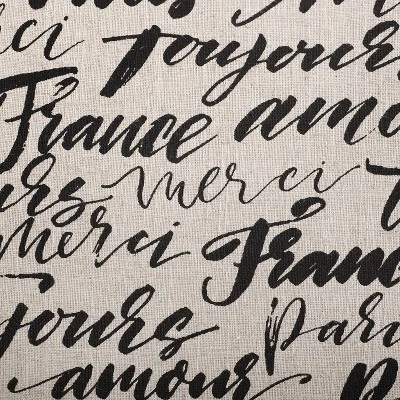 ci Toujours
France amo
urs merci
merci Franc
jours Pari
amour